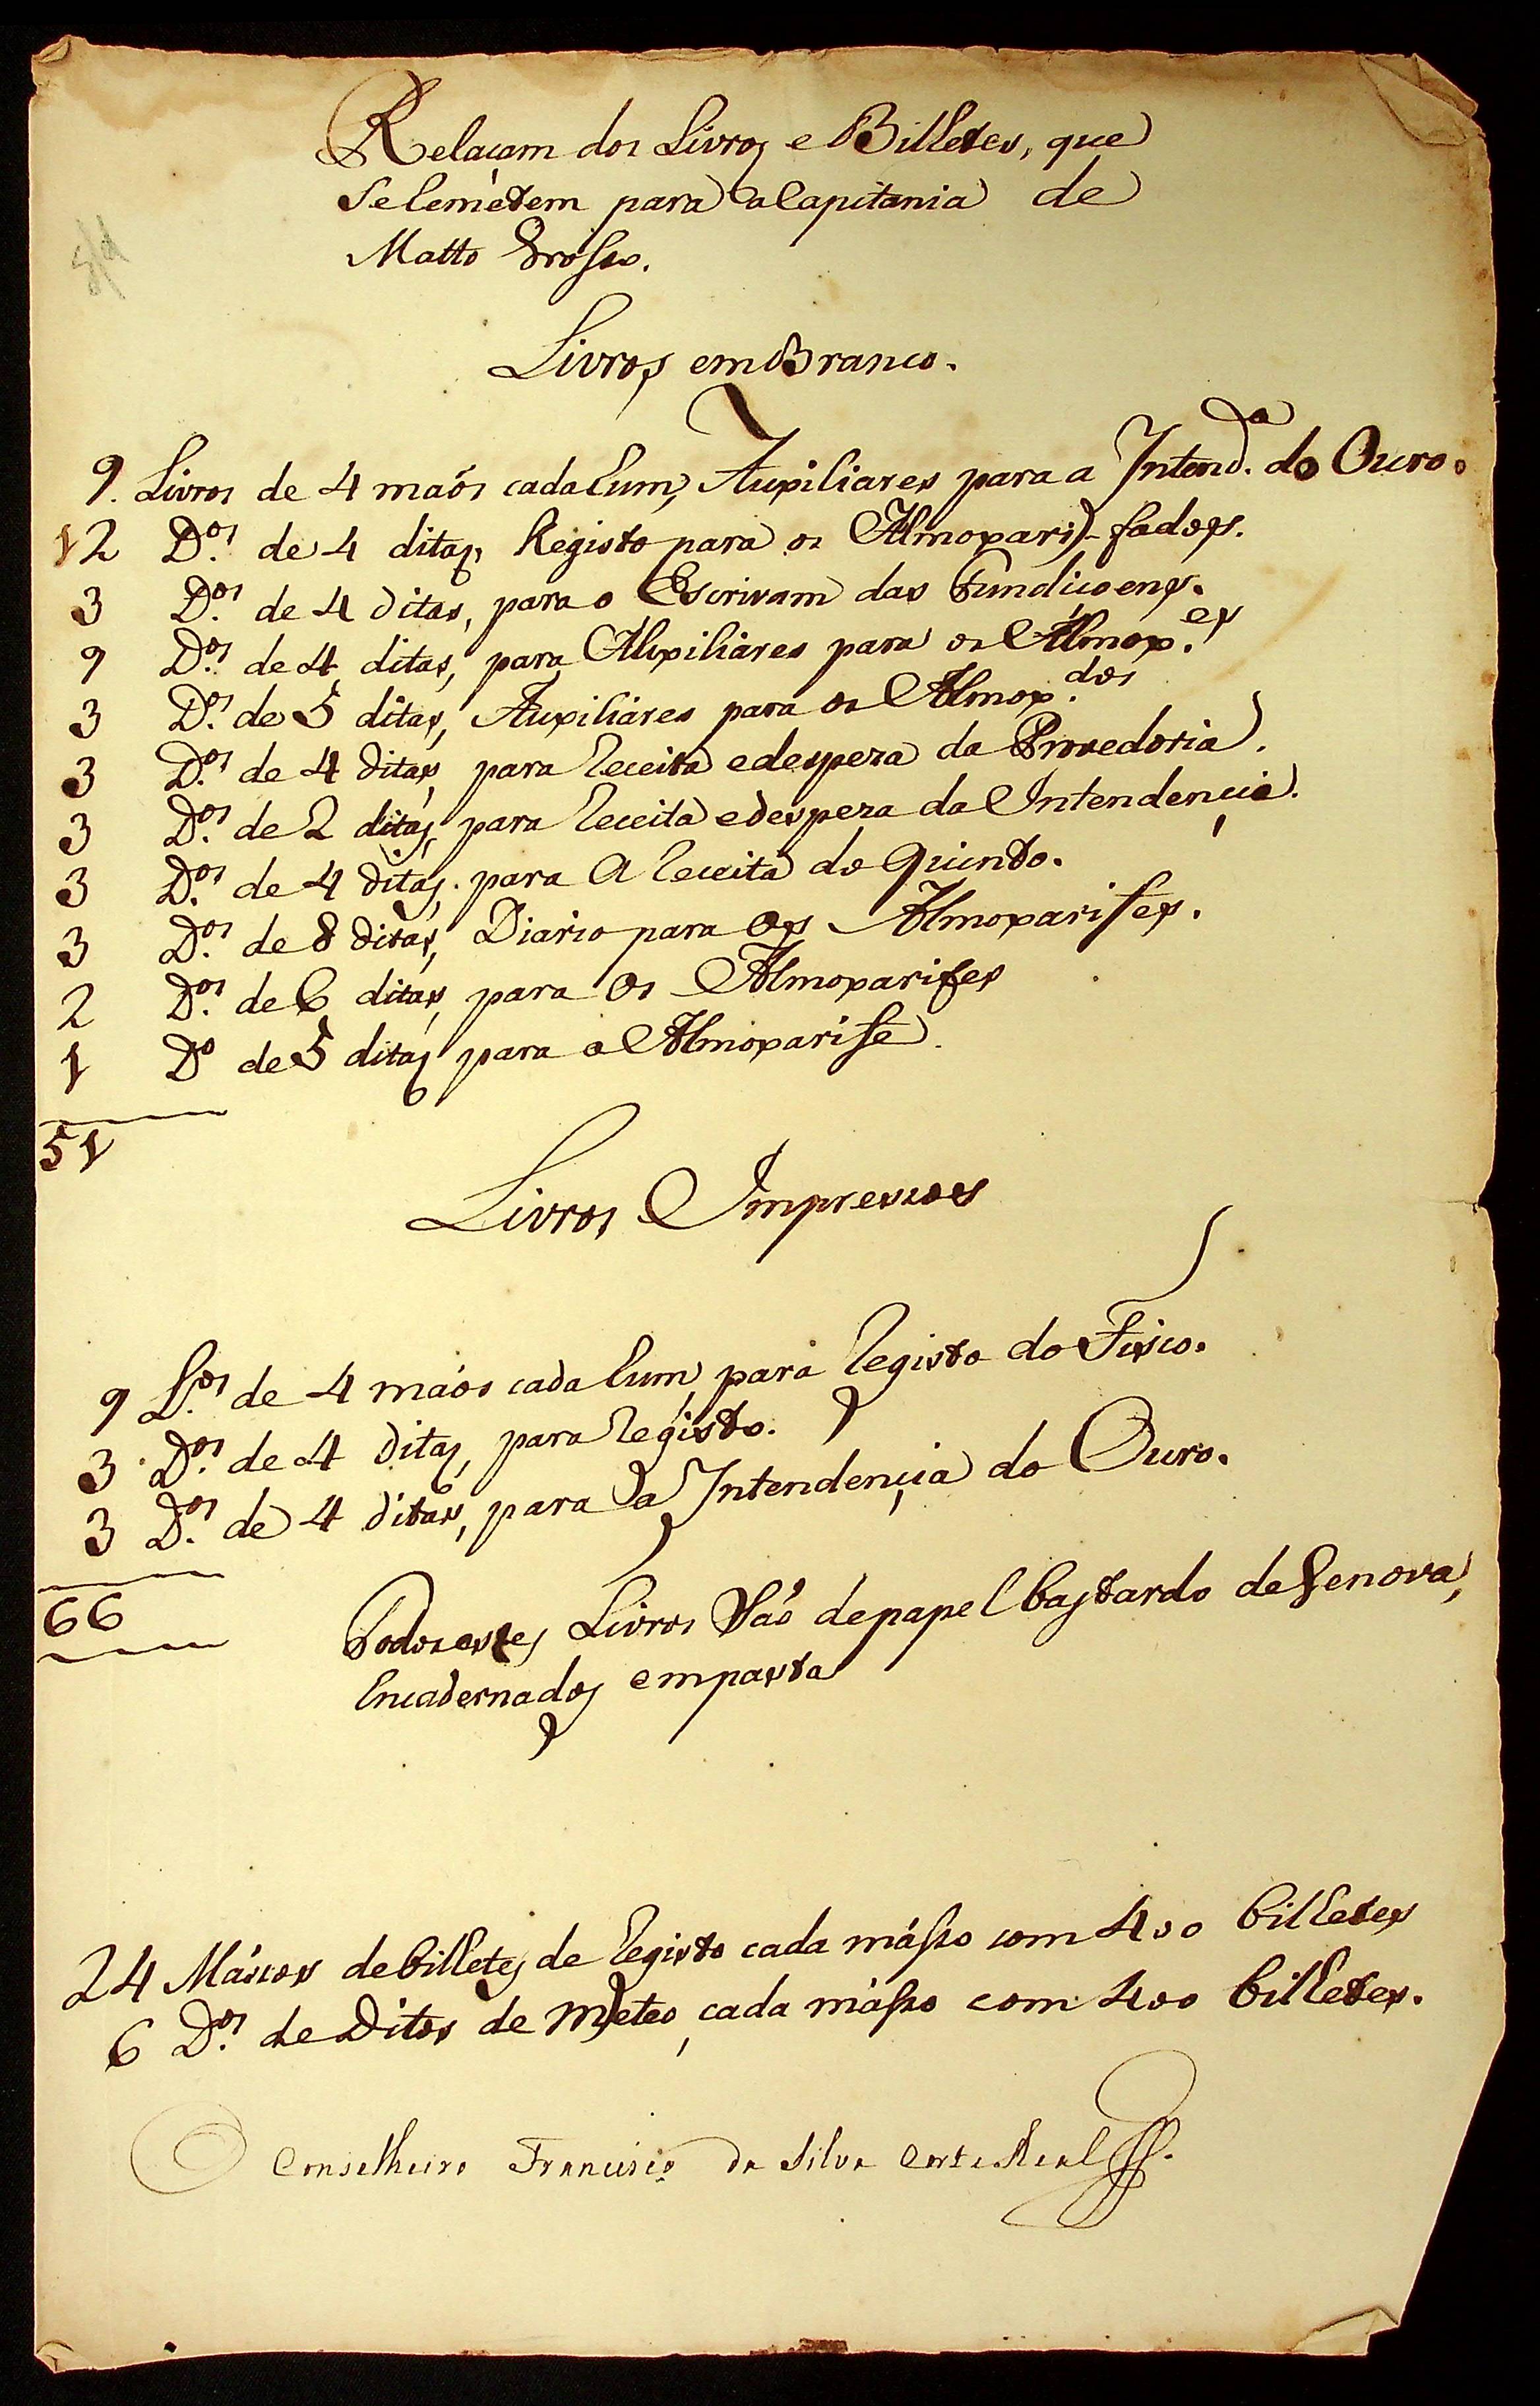 Relaçam dos Livros e Billetes, que
Se Remétem para a Capitania de
Matto Grosso.
s/d
Livros em Branco.
9. Livros de 4 maós cada hum, Auxiliares para a Intend.ª do Ouro.
12 D.os de 4 ditas, Registo para os Almoxarifados.
3 D.os de 4 ditas, para o Escrivam das Fundiçoens.
9 D.os de 4 ditas, para Auxiliares para os Almox.es
3 D.os de 5 ditas, Auxiliares para os Almox.dos
3 D.os de 4 ditas, para Receita e despeza da Provedoria.
3 D.os de 2 ditas, para Receita e despeza da Intendençia.
3 D.os de 4 ditas, para a Receita do Quinto.
3 D.os de 8 ditas, Diario para os Almoxarifes.
2 D.os de 6 ditas, para os Almoxarifes
1 D.o de 5 ditas para o Almoxarife.
51
Livros Impressos
9 L.os de 4 máos cada hum, para Registo do Fisco.
3 D.os de 4 ditas, para Registo.
3 D.os de 4 ditas, para a Intendençia do Ouro.
66
Todos estes Livros Saó de papel bastardo de Genova,
Encadernados em pasta
24 Mássos de billetes de Registo cada másso com 400 billetes
6 D.os de Ditos de Meteo, cada másso com 400 billetes.
Conselheiro Francisco da Silva Corte Real